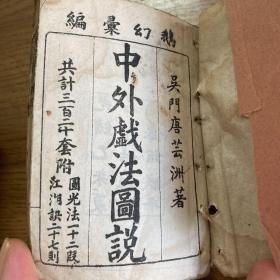 鵝幻彙編
吳門唐芸洲著
中外戲法圖説
共計三百二十套附
圓光法一十二段
江湖訣二十七則